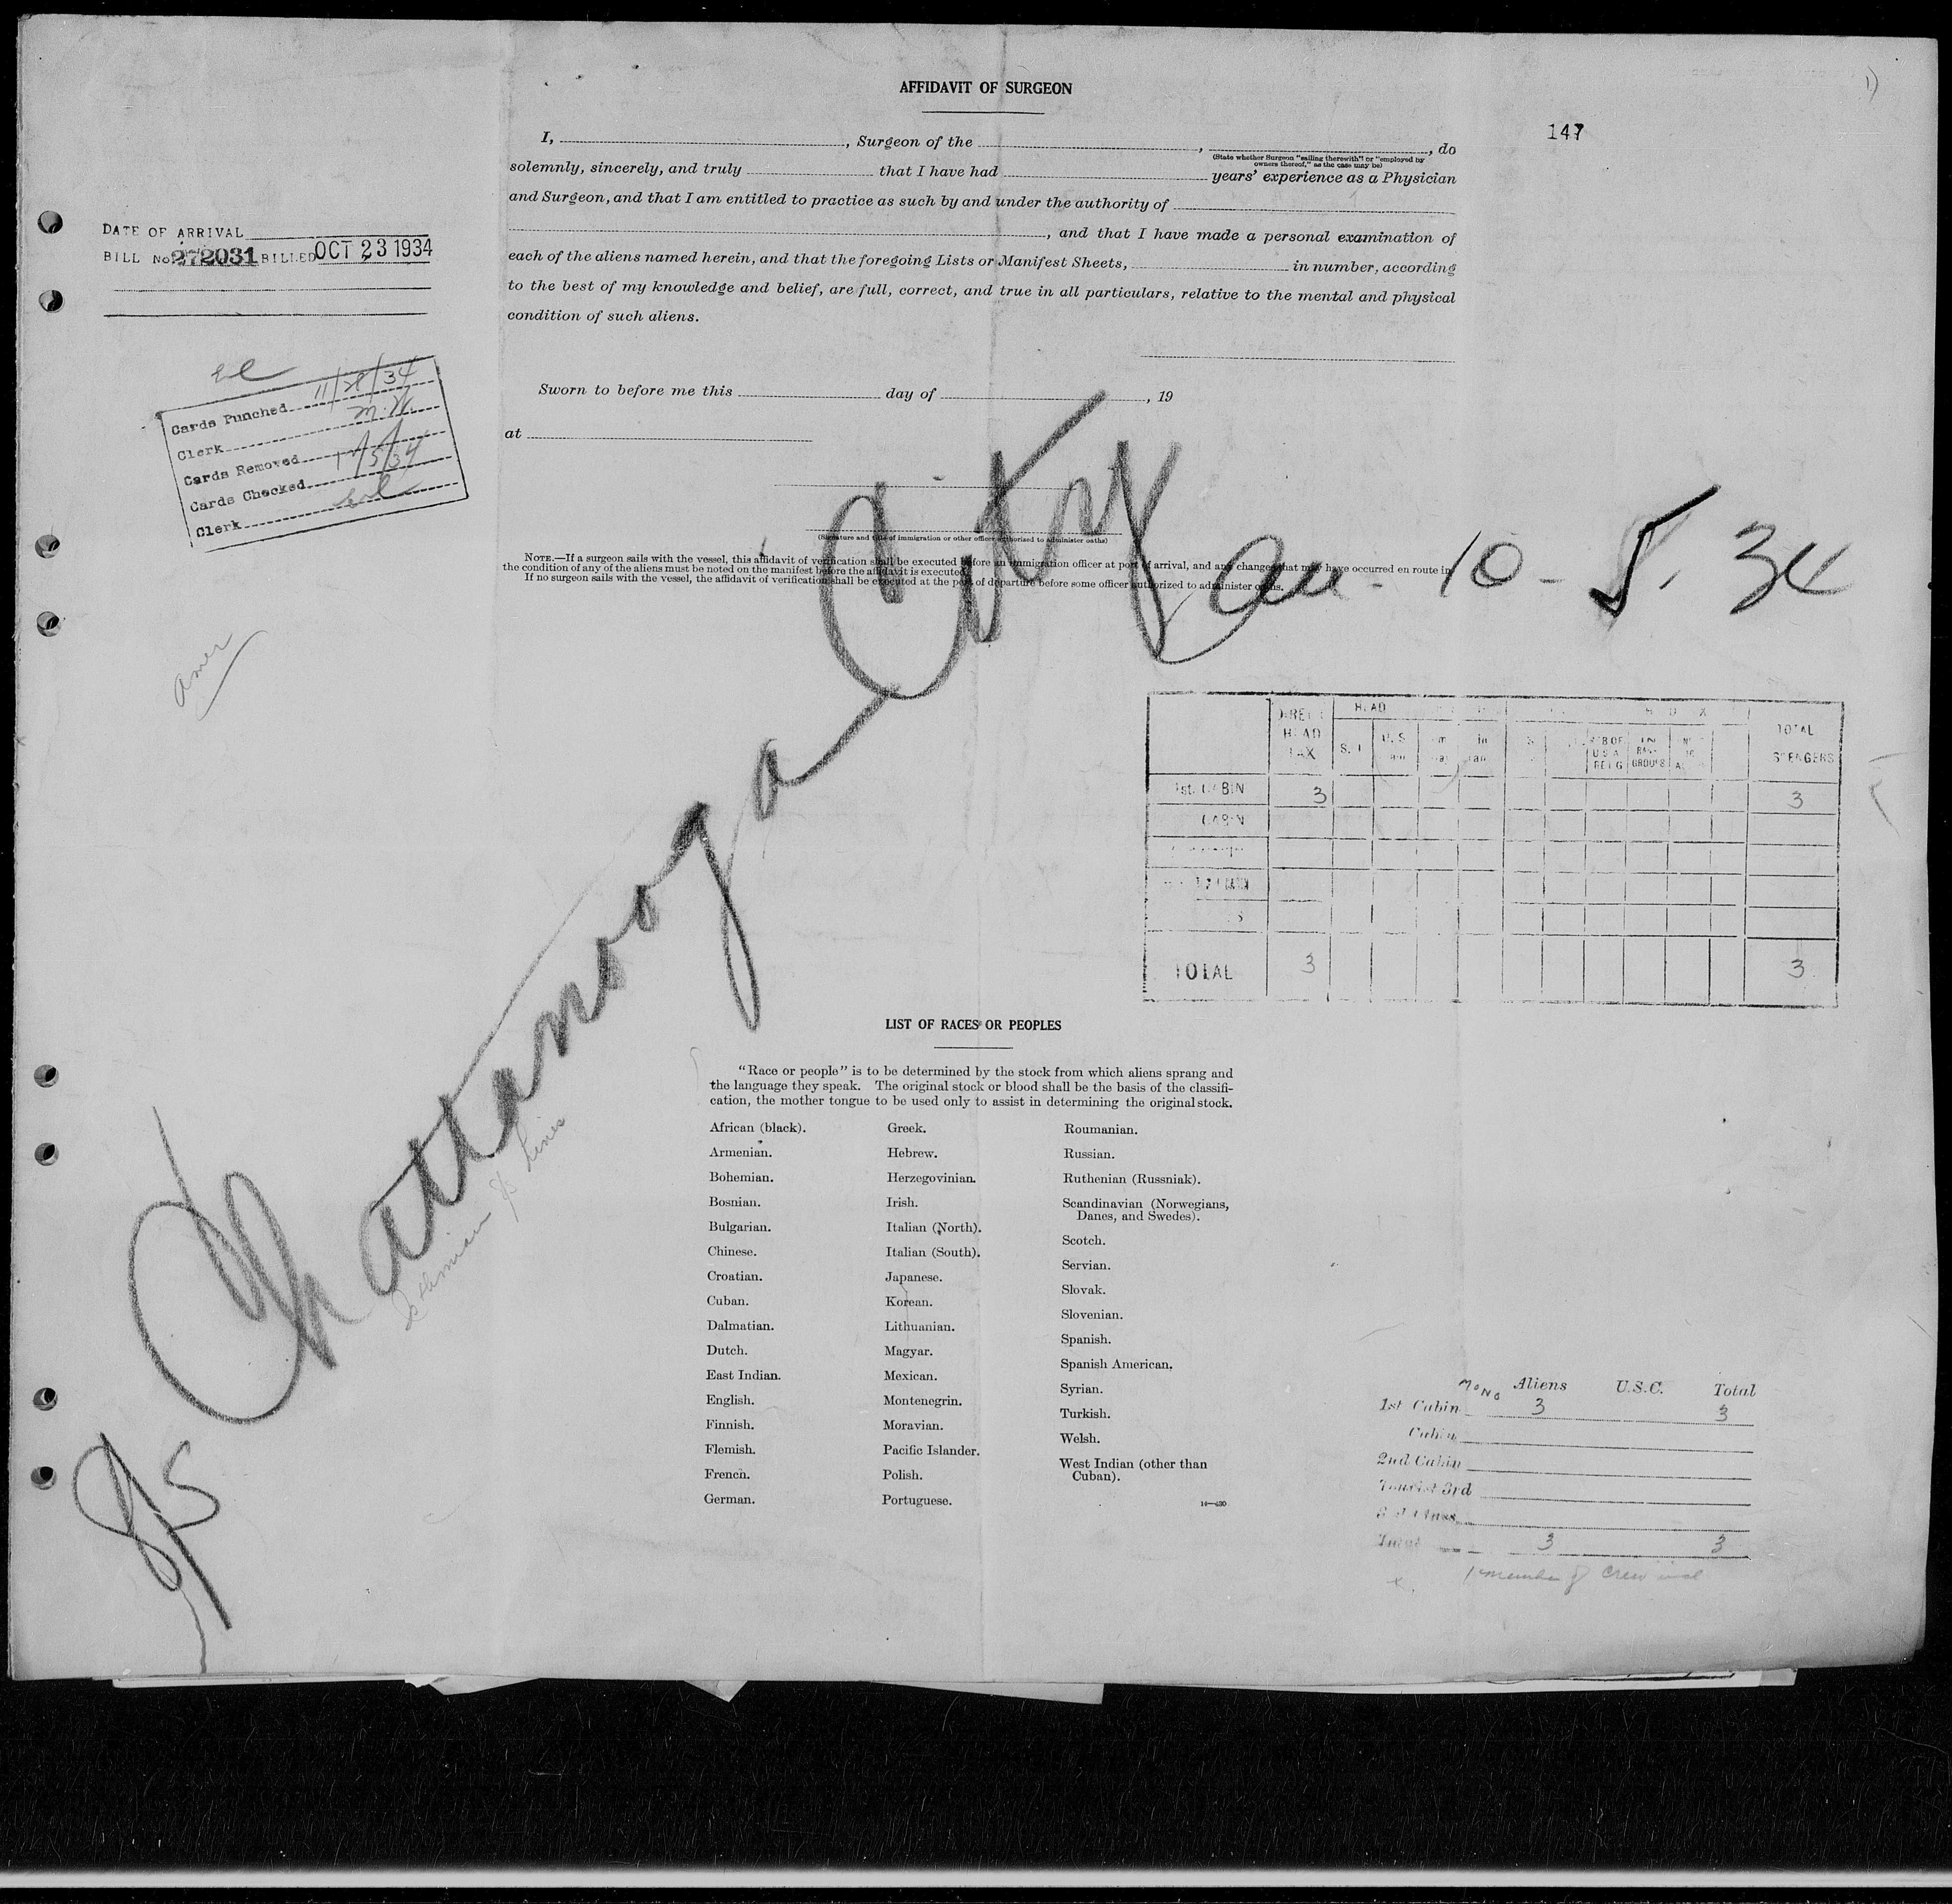 AFFIDAVIT OF SURGEON
147
1)
I, , Surgeon of the , , do
(State whether Surgeon "sailing therewith" or "employed by
owners thereof," as the case may be)
solemnly, sincerely, and truly that I have had years' experience as a Physician
and Surgeon, and that I am entitled to practice as such by and under the authority of
, and that I have made a personal examination of
each of the aliens named herein, and that the foregoing Lists or Manifest Sheets, in number, according
to the best of my knowledge and belief, are full, correct, and true in all particulars, relative to the mental and physical
condition of such aliens.
Sworn to before me this day of , 19
at
(Signature and title of immigration or other officer authorized to administer oaths)
NOTE.—If a surgeon sails with the vessel, this affidavit of verification shall be executed before an immigration officer at port of arrival, and any changes that may have occurred en route in
the condition of any of the aliens must be noted on the manifest before the affidavit is executed.
If no surgeon sails with the vessel, the affidavit of verification shall be executed at the port of departure before some officer authorized to administer oaths.
DATE OF ARRIVAL
BILL No. 272031 BILLED OCT 23 1934
Cards Punched 11/28/34
Clerk
Cards Removed
Cards Checked
Clerk
Amer
S/S Chattanooga City
10-5-34
Isthmian SS Lines
DIRECT
HEAD
TAX
HEAD
TOTAL
1st. CABIN 3 3
CABIN
TOTAL 3 3
LIST OF RACES OR PEOPLES
"Race or people" is to be determined by the stock from which aliens sprang and
the language they speak. The original stock or blood shall be the basis of the classifi-
cation, the mother tongue to be used only to assist in determining the original stock.
African (black).
Armenian.
Bohemian.
Bosnian.
Bulgarian.
Chinese.
Croatian.
Cuban.
Dalmatian.
Dutch.
East Indian.
English.
Finnish.
Flemish.
French.
German.
Greek.
Hebrew.
Herzegovinian.
Irish.
Italian (North).
Italian (South).
Japanese.
Korean.
Lithuanian.
Magyar.
Mexican.
Montenegrin.
Moravian.
Pacific Islander.
Polish.
Portuguese.
Roumanian.
Russian.
Ruthenian (Russniak).
Scandinavian (Norwegians,
Danes, and Swedes).
Scotch.
Servian.
Slovak.
Slovenian.
Spanish.
Spanish American.
Syrian.
Turkish.
Welsh.
West Indian (other than
Cuban).
Aliens U.S.C. Total
1st Cabin 3 3
Cabin
2nd Cabin
Tourist 3rd
Total 3 3
1 member of crew